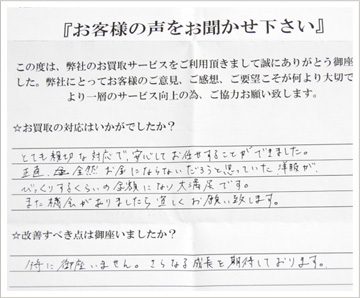 『お客様の声をお聞かせ下さい』
この度は、弊社のお買取サービスをご利用頂きまして誠にありがとう御座
した。弊社にとってお客様のご意見、ご感想、ご要望こそが何より大切で
より一層のサービス向上の為、ご協力お願い致します。
☆お買取の対応はいかがでしたか？
とても親切な対応で、安心してお任せすることができました。
正直、全然お金にならないだろうと思っていた洋服が、
びっくりするくらいの金額になり大満足です。
また機会がありましたら宜しくお願い致します。
☆改善すべき点は御座いましたか？
特に御座いません。さらなる成長を期待しております。